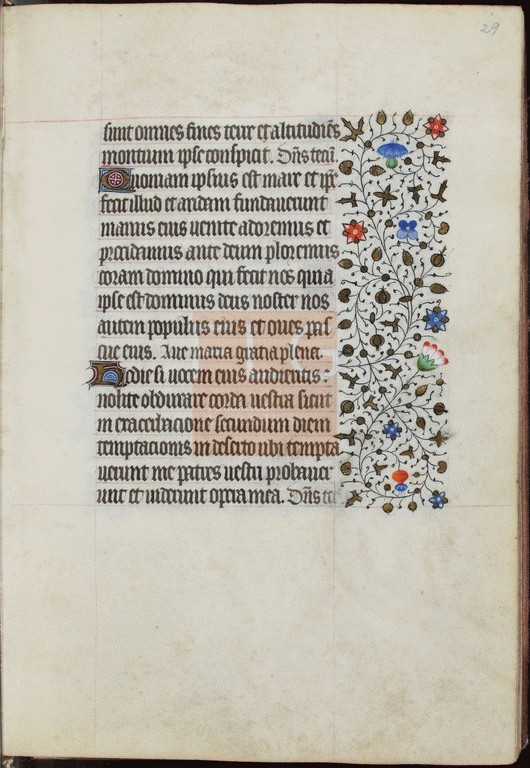 29
sunt omnes fines terre et altitudies
montium ipse conspicit. Dns tecu.
Quoniam ipsius est mare et ipe
fecit illud et aridam fundaverunt
manus eius venite adoremus et
procidamus ante deum ploremus
coram domino qui fecit nos quia
ipse est dominus deus noster nos
autem populus eius et oves pas
cue eius. Ave maria gratia plena.
Hodie si vocem eius audieritis:
nolite obdurare corda vestra sicut
in exacerbacione secundum diem
temptacionis in deserto ubi tempta
verunt me patres vestri probaver
unt et viderunt opera mea. Dns tec